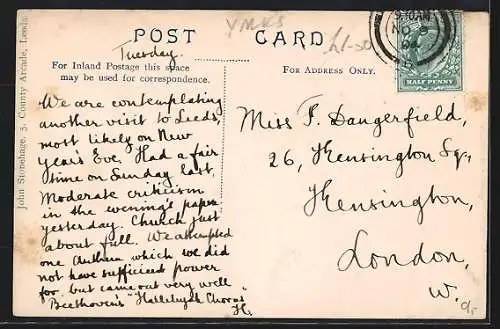 POST CARD
YMKS
£1-50
Tuesday.
For Inland Postage this space
may be used for correspondence.
For Address Only.
HALF PENNY
John Stonehage, 3, County Arcade, Leeds
We are contemplating
another visit to Leeds,
most likely on New
Year's Eve. Had a fair
time on Sunday last.
Moderate criticism
in the evening's paper
yesterday. Church just
about full. We attempted
one Anthem which we did
not have sufficient power
for but came out very well
Beethoven's "Hallelujah Chorus"
H.
Miss F. Dangerfield,
26, Kensington Sq.,
Kensington,
London,
W.